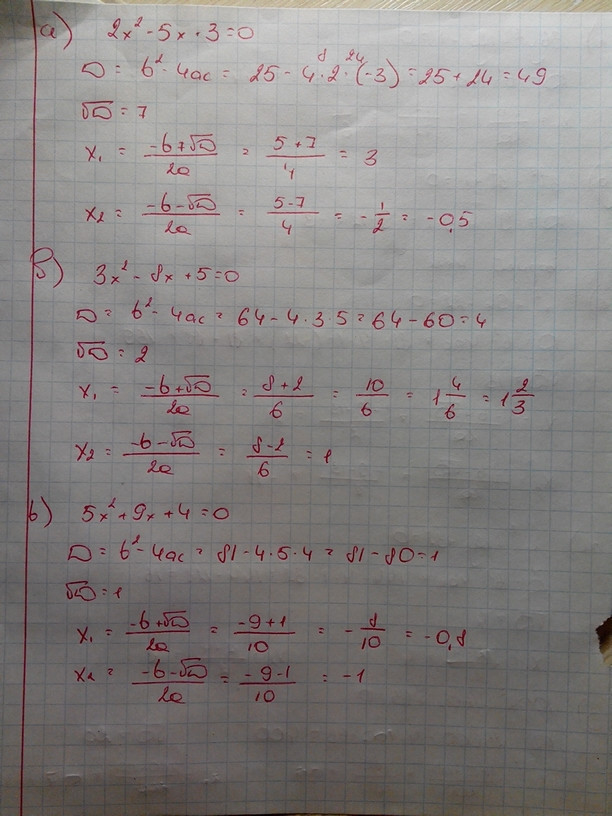 а) 2x² - 5x · 3 = 0
D = b² - 4ac = 25 - 4 · 2 · (-3) = 25 + 24 = 49
8 24
√D = 7
x₁ = (-b+√D)/2a = (5+7)/4 = 3
x₂ = (-b-√D)/2a = (5-7)/4 = -1/2 = -0,5
б) 3x² - 8x + 5 = 0
D = b² - 4ac = 64 - 4 · 3 · 5 = 64 - 60 = 4
√D = 2
x₁ = (-b+√D)/2a = (8+2)/6 = 10/6 = 1 4/6 = 1 2/3
x₂ = (-b-√D)/2a = (8-2)/6 = 1
в) 5x² + 9x + 4 = 0
D = b² - 4ac = 81 - 4 · 5 · 4 = 81 - 80 = 1
√D = 1
x₁ = (-b+√D)/2a = (-9+1)/10 = -8/10 = -0,8
x₂ = (-b-√D)/2a = (-9-1)/10 = -1